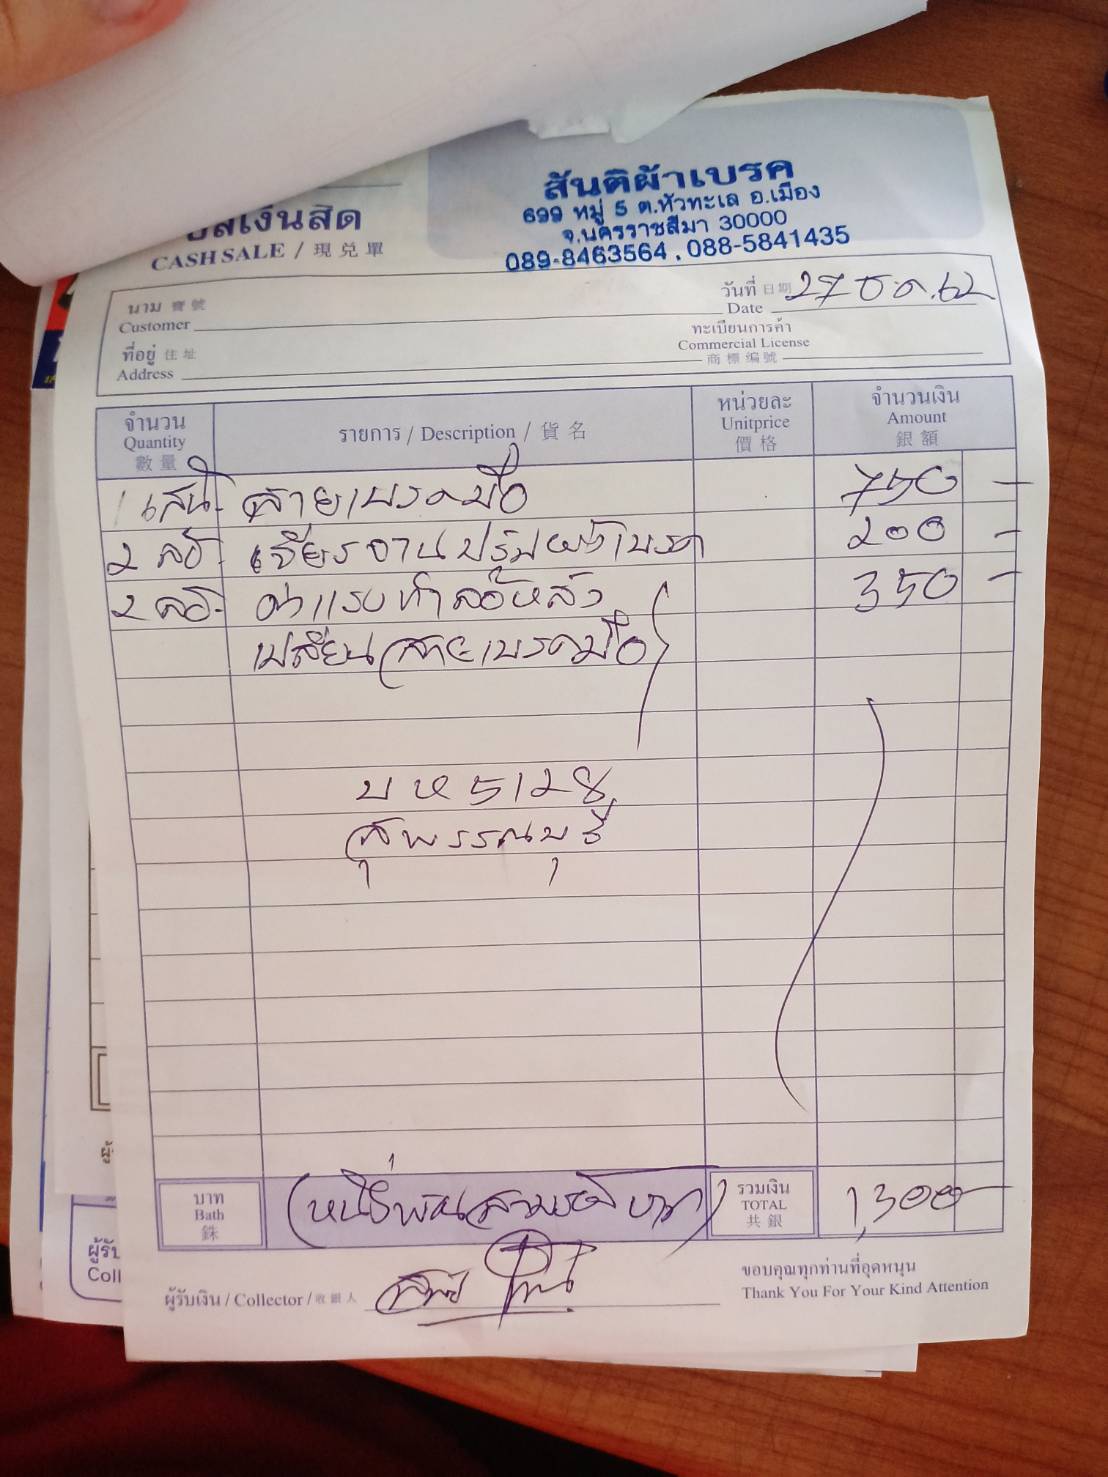 สันติผ้าเบรค
699 หมู่ 5 ต.หัวทะเล อ.เมือง
จ.นครราชสีมา 30000
089-8463564 , 088-5841435
บิลเงินสด
CASH SALE / 現兌單
นาม 寶號
Customer
วันที่ 日期 27 ธ.ค. 62
Date
ที่อยู่ 住址
Address
ทะเบียนการค้า
Commercial License
商標編號
จำนวน
Quantity
數量
รายการ / Description / 貨名
หน่วยละ
Unitprice
價格
จำนวนเงิน
Amount
銀額
1 เส้น สายเบรคมือ 750 -
2 ล้อ เจียรจานปรับผ้าเบรค 200 -
2 ล้อ ค่าแรงทำล้อหลัง 350 -
เปลี่ยนสายเบรคมือ
บห 5128
สุพรรณบุรี
บาท
Bath
銖
(หนึ่งพันสามร้อยบาท)
รวมเงิน
TOTAL
共銀
1,300 -
ผู้รับเงิน / Collector / 收銀人
ขอบคุณทุกท่านที่อุดหนุน
Thank You For Your Kind Attention
ผู้รับ
Coll